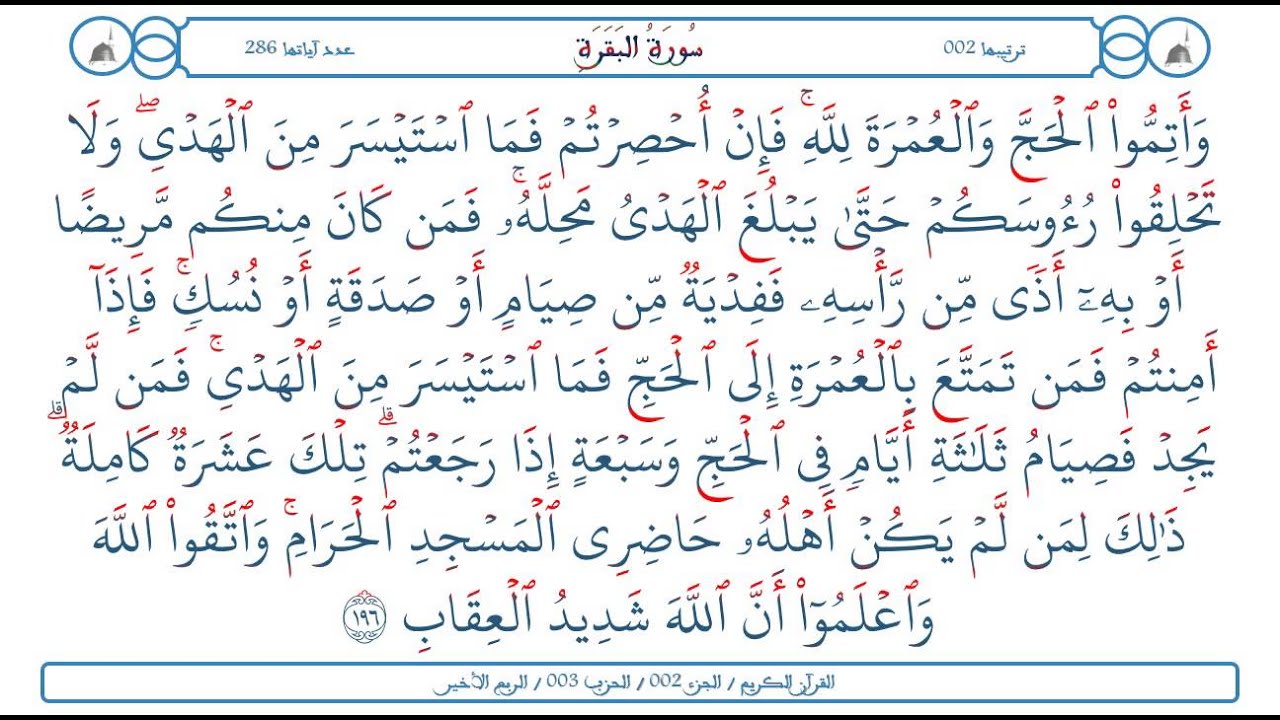 ترتيبها 002 سُورَةُ البَقَرَةِ عدد آياتها 286
وَأَتِمُّوا۟ ٱلْحَجَّ وَٱلْعُمْرَةَ لِلَّهِ ۚ فَإِنْ أُحْصِرْتُمْ فَمَا ٱسْتَيْسَرَ مِنَ ٱلْهَدْىِ ۖ وَلَا
تَحْلِقُوا۟ رُءُوسَكُمْ حَتَّىٰ يَبْلُغَ ٱلْهَدْىُ مَحِلَّهُۥ ۚ فَمَن كَانَ مِنكُم مَّرِيضًا
أَوْ بِهِۦٓ أَذًى مِّن رَّأْسِهِۦ فَفِدْيَةٌ مِّن صِيَامٍ أَوْ صَدَقَةٍ أَوْ نُسُكٍ ۚ فَإِذَآ
أَمِنتُمْ فَمَن تَمَتَّعَ بِٱلْعُمْرَةِ إِلَى ٱلْحَجِّ فَمَا ٱسْتَيْسَرَ مِنَ ٱلْهَدْىِ ۚ فَمَن لَّمْ
يَجِدْ فَصِيَامُ ثَلَٰثَةِ أَيَّامٍ فِى ٱلْحَجِّ وَسَبْعَةٍ إِذَا رَجَعْتُمْ ۗ تِلْكَ عَشَرَةٌ كَامِلَةٌ ۗ
ذَٰلِكَ لِمَن لَّمْ يَكُنْ أَهْلُهُۥ حَاضِرِى ٱلْمَسْجِدِ ٱلْحَرَامِ ۚ وَٱتَّقُوا۟ ٱللَّهَ
وَٱعْلَمُوٓا۟ أَنَّ ٱللَّهَ شَدِيدُ ٱلْعِقَابِ ١٩٦
القرآن الكريم / الجزء 002 / الحزب 003 / الربع الأخير